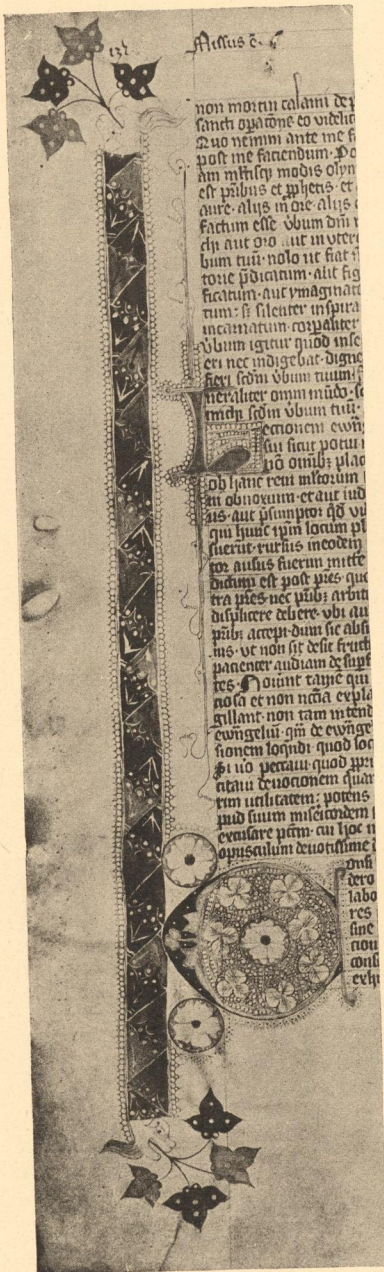 Missus ē
non mortui calami de p
sancti opatone eo videlic
Quo nemini ante me f
post me faciendum. Po
am mltisq modis olyn
est pribus et pphetis. et
aure. alijs in ore. alijs
factum esse vbum dni
chi aut oro aut in vter
bum tuū. nolo ut fiat
torie pdicatum. aut fig
ficatum. aut ymaginat
tum: si silenter inspira
incarnatum. corpaliter
Vbum igitur quod
eri nec indigebat. digne
fieri scdm vbum tuum
neraliter omni mūdo. s
michi scdm vbum tuū.
Lectionem ewn
sui sicut potui
pō omībz plac
ob hanc rem mltorum
m obnoxium. et aut iud
is. aut psumptor qd
qui hunc ipm locum pl
fuerūt. rursus in eodem
tor ausus fuerim mitte
dictum est post pres. que
tra pres nec pribz arbit
displicere debere. vbi au
pribz accepi. dum sic abs
nis. vt non sit desit fruct
pacienter audiam de supf
tes. Nouint tamē qui
ciosa et non nccia expla
gillant. non tam intend
ewngeliū. qm de ewnge
sionem loqndi. quod loc
Si uo peccaui. quod ppri
citaui deuocionem quam
rim utilitatem: potens
pud suum misericordem
excusare pctm. cui hoc m
opusculum deuotissime
onsi
dero
labo
res
sine
ciou
consi
exhi